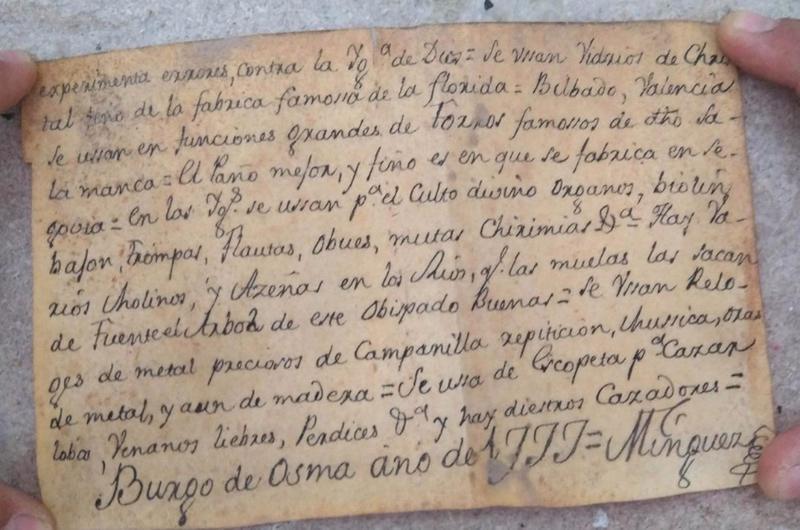 experimenta errores, contra la Yg.ª de Dios = Se ussan Vidrios de Chris
tal fino de la fabrica famossa de la florida = Bilbado, Valencia
se ussan en funciones grandes de torros famossos de dho Sa-
lamanca = El Paño mejor, y fino es en que se fabrica en Se-
govia = en las Ygs. se ussan p.ª el Culto divino Organos, biolin,
bajon, trompas, Flautas, Obues, Chirimias &.ª = Hay Va-
rios Molinos, y Azeñas en los Rios, q.e las muelas las sacan
de Fuente el Arbol de este Obispado Buenas = Se Vssan Relo-
ges de metal preciosos de Campanilla repiticion, Mussica, oras
de metal, y aun de madera = Se ussa de Escopeta p.ª Cazar
lobos, Venanos liebres, Perdices &.ª y hay diestros Cazadores =
Burgo de Osma año de 1777 = Minguez